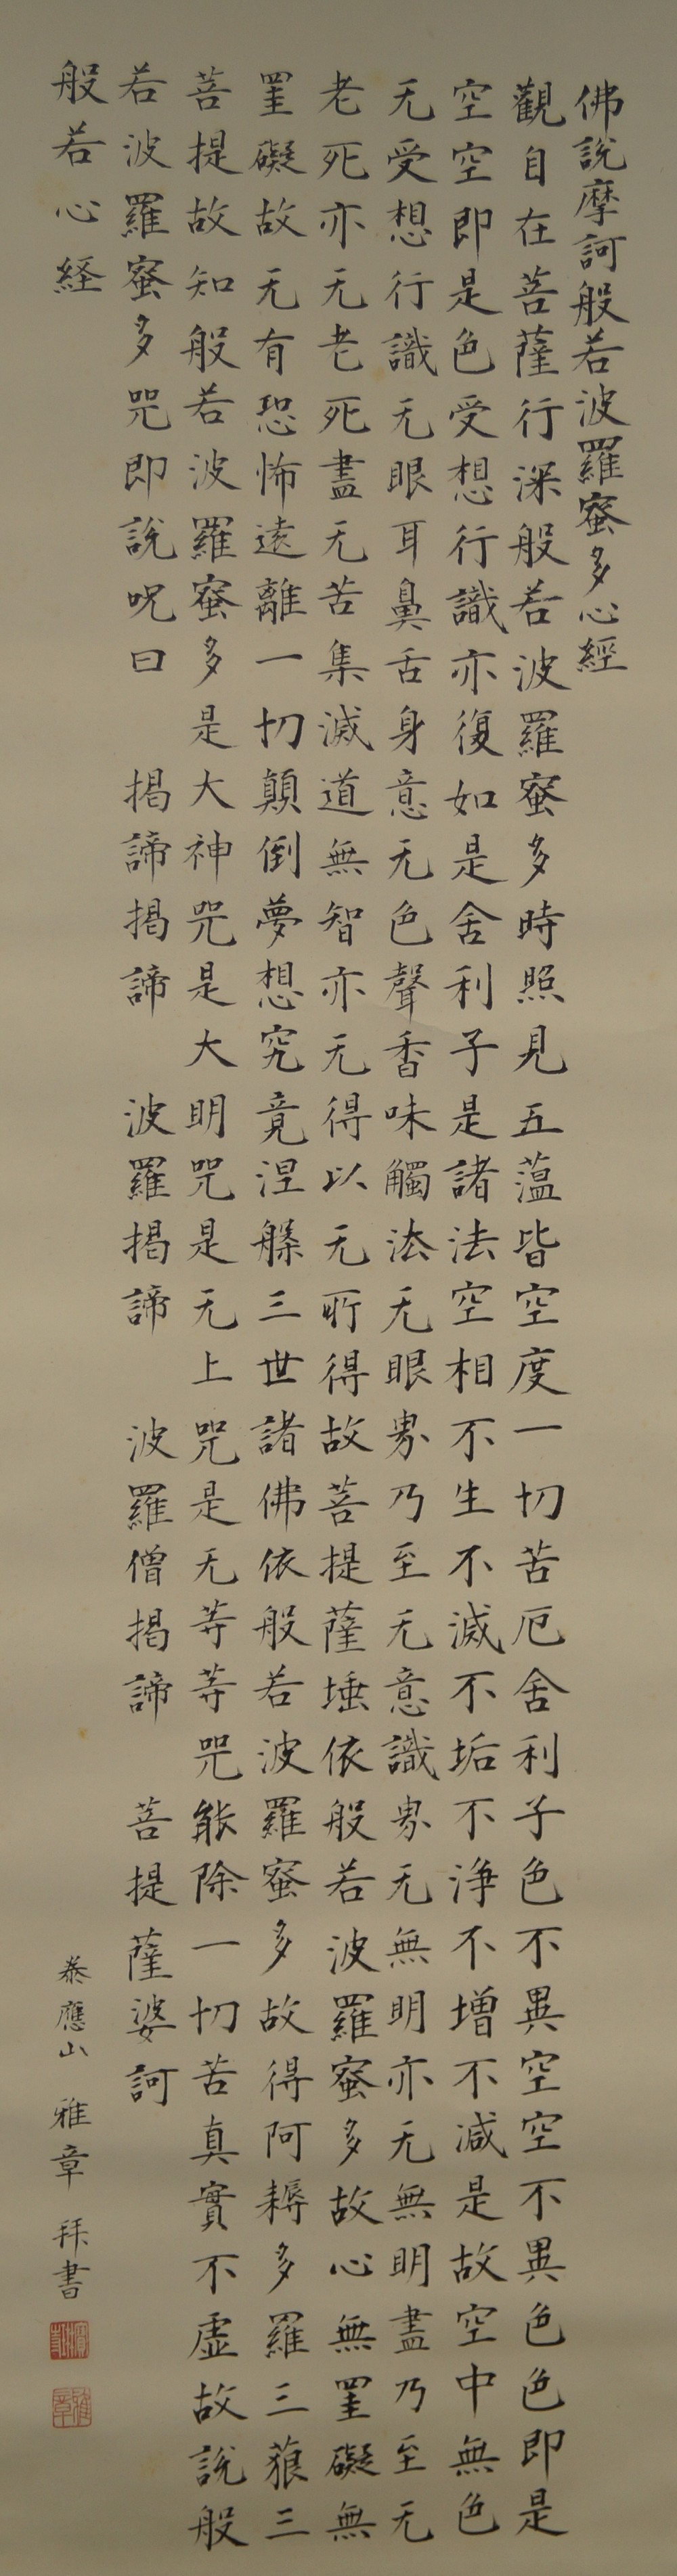 佛說摩訶般若波羅蜜多心經
觀自在菩薩行深般若波羅蜜多時照見五蕰皆空度一切苦厄舍利子色不異空空不異色色即是
空空即是色受想行識亦復如是舍利子是諸法空相不生不滅不垢不淨不增不減是故空中無色
无受想行識无眼耳鼻舌身意无色聲香味觸法无眼界乃至无意識界无無明亦无無明盡乃至无
老死亦无老死盡无苦集滅道無智亦无得以无所得故菩提薩埵依般若波羅蜜多故心無罣礙無
罣礙故无有恐怖遠離一切顛倒夢想究竟涅槃三世諸佛依般若波羅蜜多故得阿耨多羅三藐三
菩提故知般若波羅蜜多是大神咒是大明咒是无上咒是无等等咒能除一切苦真實不虛故說般
若波羅蜜多咒即說呪曰 揭諦揭諦 波羅揭諦 波羅僧揭諦 菩提薩婆訶
般若心経
泰應山 雅章 拜書
雅章